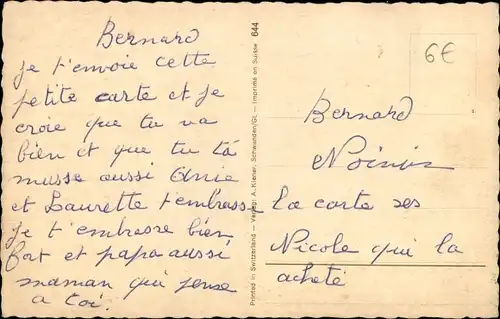 Bernard
Je t'envoie cette
petite carte et je
croie que tu va
bien et que tu t'a
musse aussi Anie
et Laurette t'embrass
je t'embrasse bien
fort et papa aussi
maman qui pense
a toi.
Printed in Switzerland — Verlag: A. Kiener, Schwanden/GL — Imprimé en Suisse 644
6€
Bernard
la carte ses
Nicole qui la
acheté